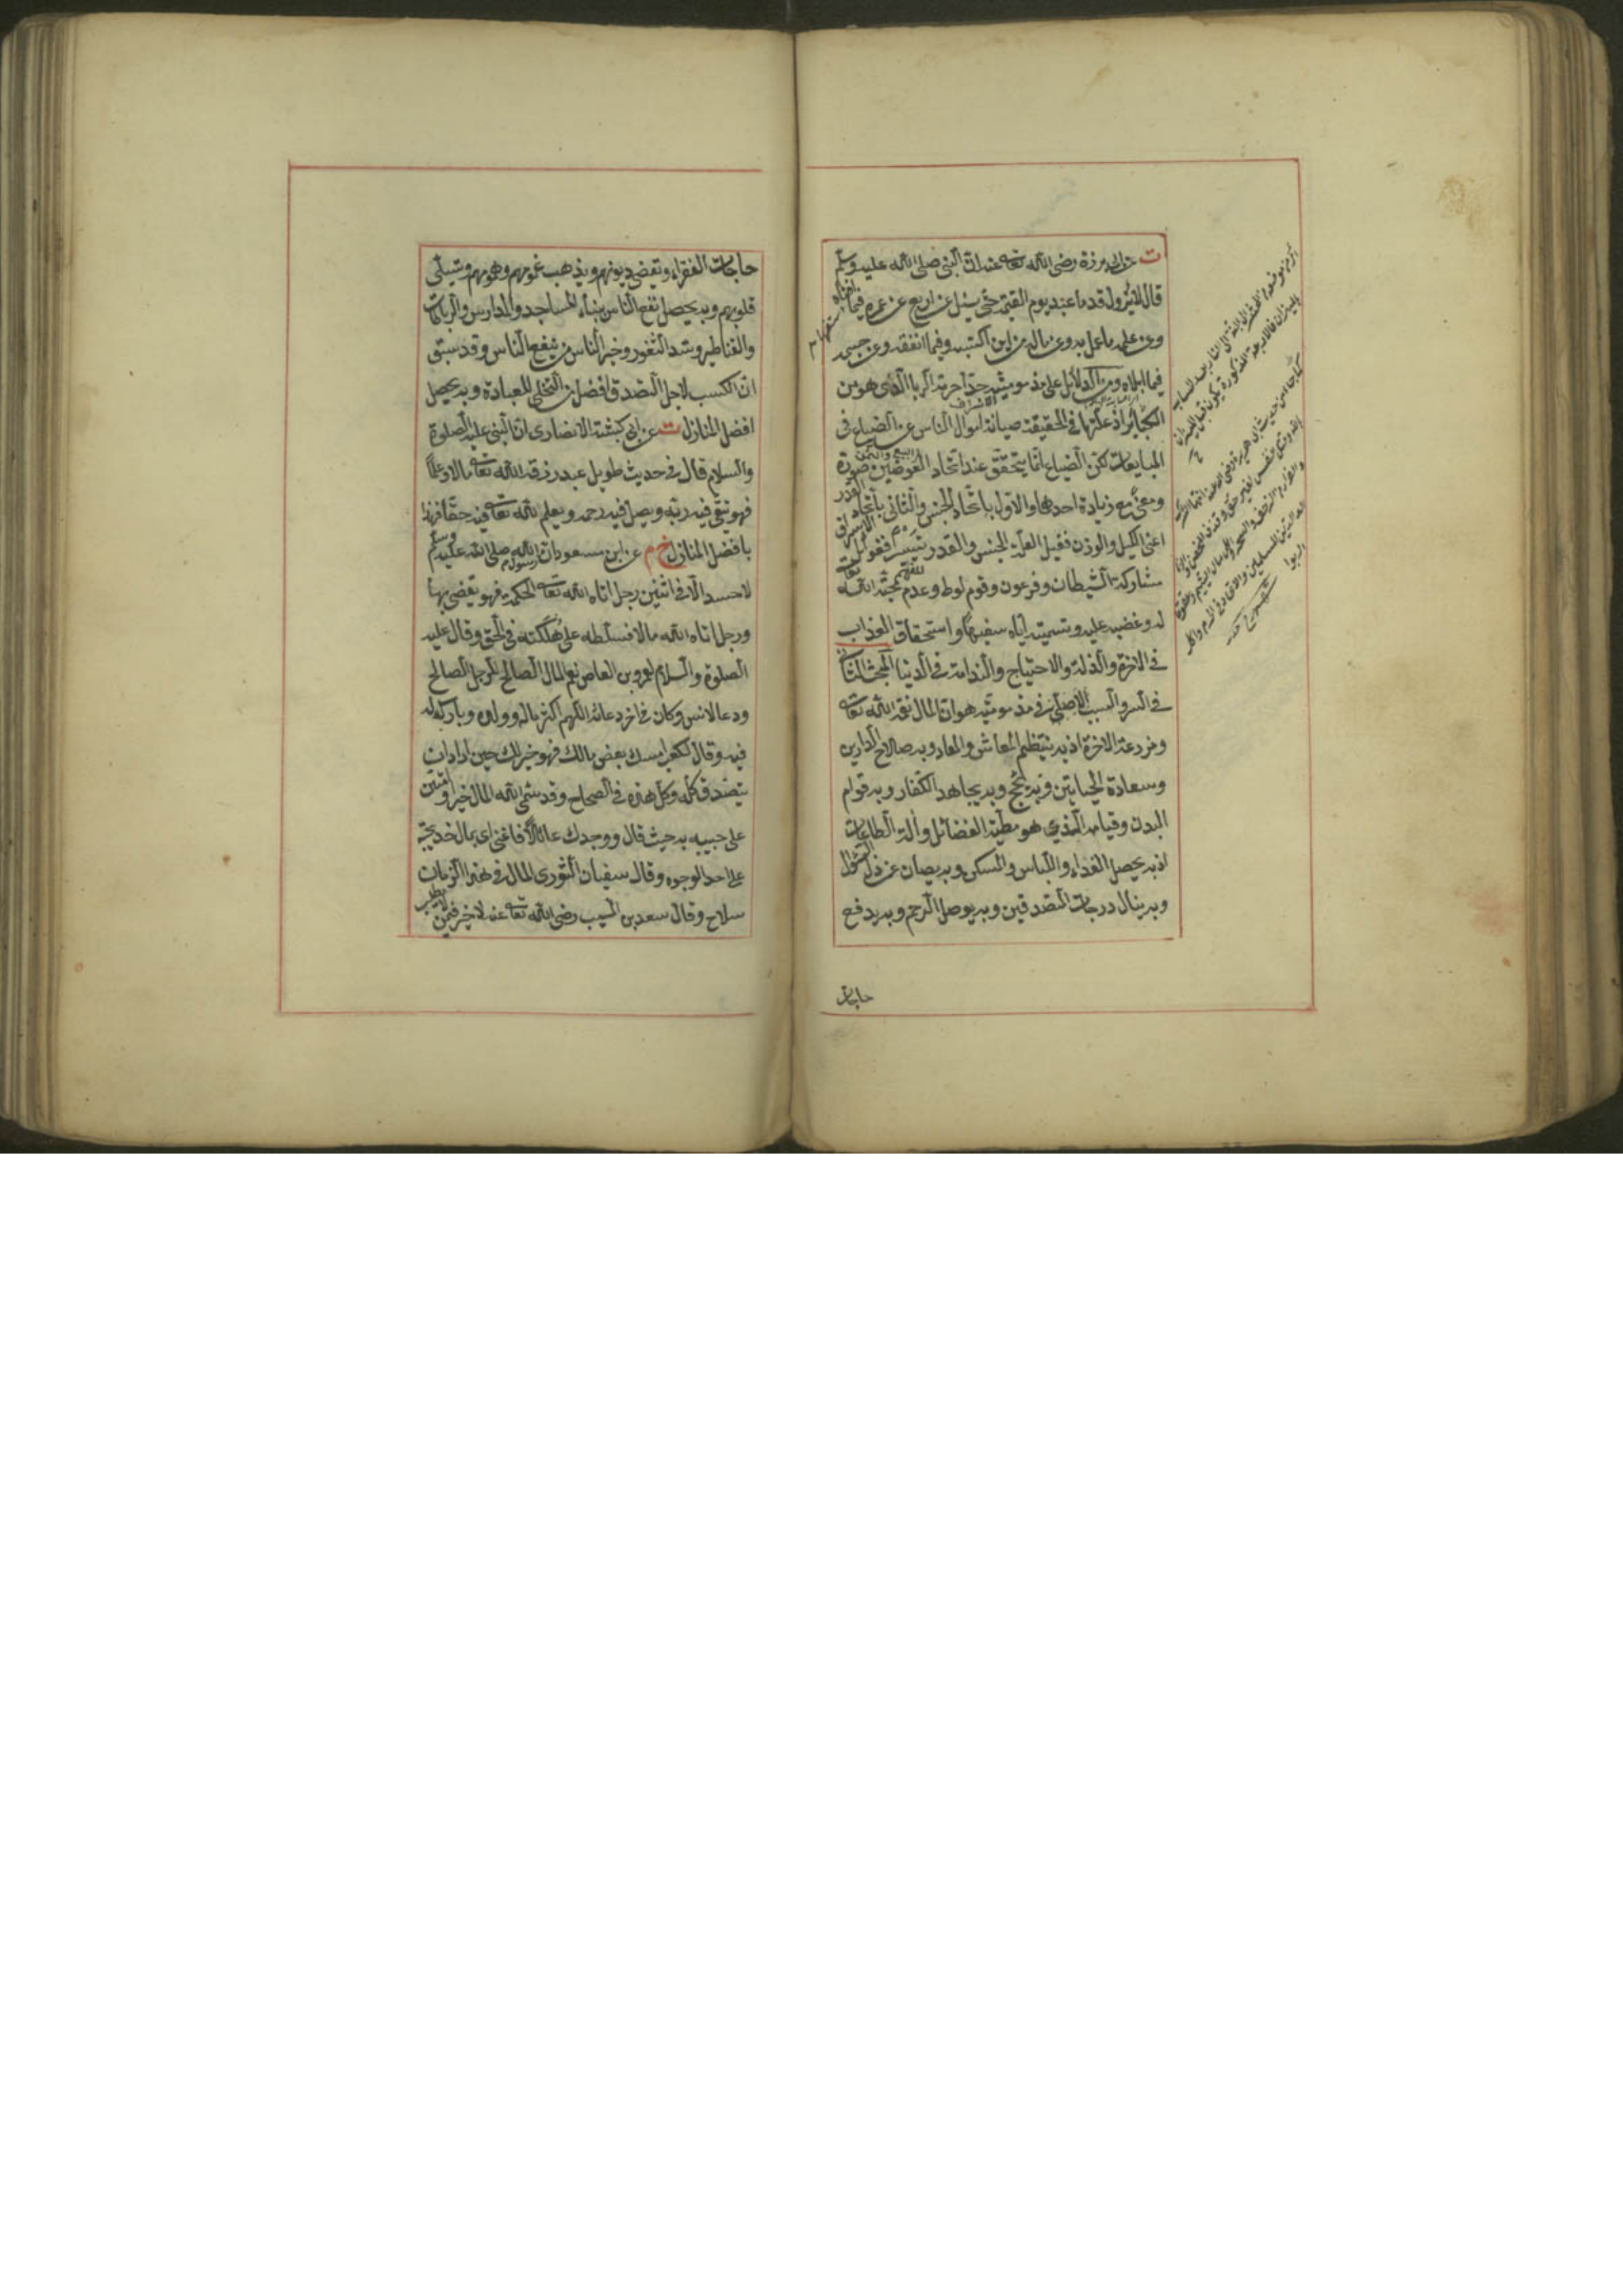 ت عن ابى برزة رضى الله تعالى عنه ان النبى صلى الله عليه وسلم
قال لا تزول قدما عبد يوم القيمة حتى يسئل عن اربع عن عمره فيما افناه
وعن علمه ما عمل به وعن ماله من اين اكتسبه وفيما انفقه وعن جسمه
فيما ابلاه ومن الدلائل على مذموميته جدا حرمة الربا الذى هو من
الكبائر اذ علتها فى الحقيقة صيانة اموال الناس عن الضياع فى
المبايعات لكن الضياع انما يتحقق عند اتحاد العوضين صورة
ومعنى مع زيادة احدهما والاول باتحاد الجنس والثانى باتحاد القدر
اعنى الكيل والوزن فقيل العلة الجنس والقدر تيسيرا فغوائل الاسراف
مشاركة الشيطان وفرعون وقوم لوط وعدم محبة الله تعالى
له وغضبه عليه وتسميته اياه سفيها واستحقاق العذاب
فى الاخرة والذلة والاحتياج والندامة فى الدنيا المبحث الثانى
فى السر والسبب الاصلى فى مذموميته هو ان المال نعمة الله تعالى
ومزرعة الاخرة اذ به ينتظم المعاش والمعاد وبه صلاح الدارين
وسعادة الحياتين وبه يحج وبه يجاهد الكفار وبه قوام
البدن وقيامه الذى هو مطية الفضائل وآلة الطاعات
اذ به يحصل الغذاء واللباس والمسكن وبه يصان عن ذل السؤال
وبه ينال درجات المتصدقين وبه يوصل الرحم وبه يدفع
حاجات
حاجات الفقراء وتقضى ديونهم ويذهب غمومهم وهمومهم ويتسلى
قلوبهم وبه يحصل نفع الناس ببناء المساجد والمدارس والرباطات
والقناطير وسد الثغور وخير الناس من ينفع الناس وقد سبق
ان الكسب لاجل التصدق افضل من التخلى للعبادة وبه يحصل
افضل المنازل ت عن ابى كبشة الانصارى ان النبى عليه الصلوة
والسلام قال فى حديث طويل عبد رزقه الله تعالى مالا وعلما
فهو يتقى فيه ربه ويصل فيه رحمه ويعلم لله تعالى فيه حقا فهذا
بافضل المنازل خ م عن ابن مسعود ان رسول الله صلى الله عليه وسلم
لا حسد الا فى اثنين رجل اتاه الله تعالى الحكمة فهو يقضى بها
ورجل اتاه الله مالا فسلطه على هلكته فى الحق وقال عليه
الصلوة والسلام لعمرو بن العاص نعم المال الصالح للرجل الصالح
ودعا لانس وكان فى اخر دعائه اللهم اكثر ماله وولده وبارك له
فيه وقال لكعب امسك بعض مالك فهو خير لك حين اراد ان
يتصدق كله وكل هذه فى الصحاح وقد سمى الله المال خيرا وامتن
على حبيبه به حيث قال ووجدك عائلا فاغنى اى بمال خديجة
على احد الوجوه وقال سفيان الثورى المال فى هذا الزمان
سلاح وقال سعد بن المسيب رضى الله تعالى عنه لا خير فيمن لا يطلب